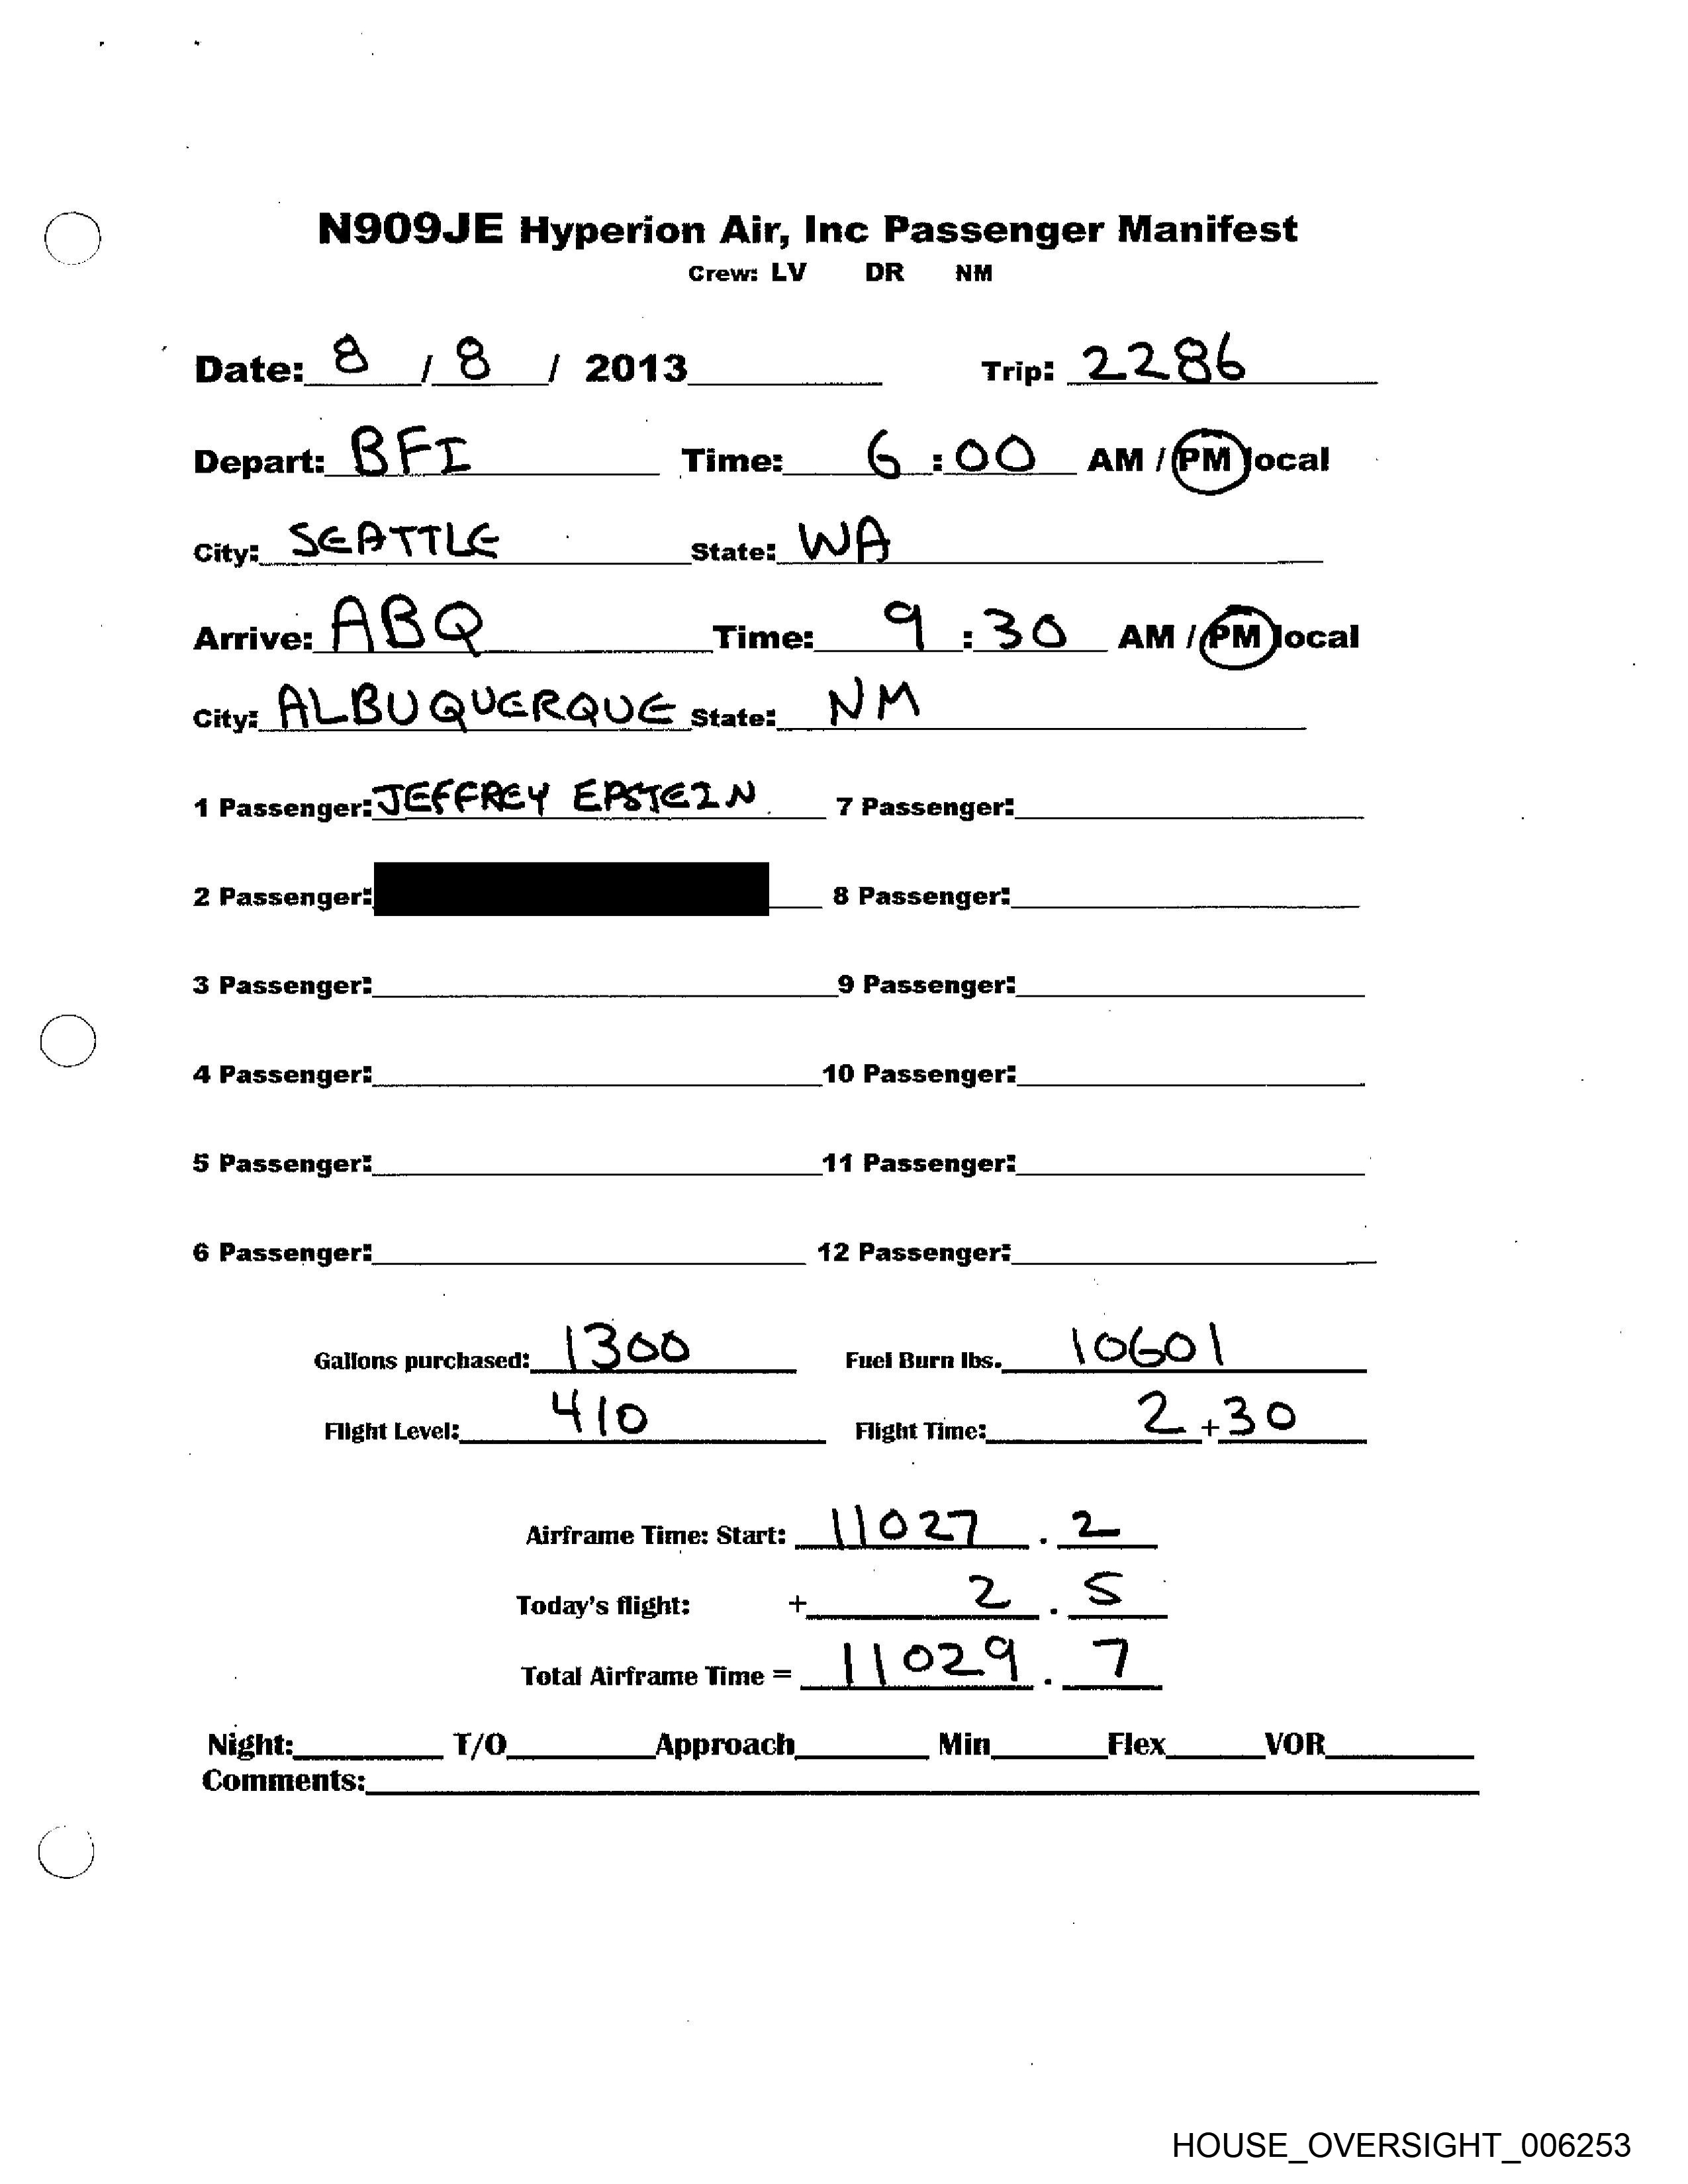 N909JE Hyperion Air, Inc Passenger Manifest
Crew: LV DR NM
Date: 8 / 8 / 2013 Trip: 2286
Depart: BFI Time: 6:00 AM / PM local
City: SEATTLE State: WA
Arrive: ABQ Time: 9:30 AM / PM local
City: ALBUQUERQUE State: NM
1 Passenger: JEFFREY EPSTEIN 7 Passenger:
2 Passenger: 8 Passenger:
3 Passenger: 9 Passenger:
4 Passenger: 10 Passenger:
5 Passenger: 11 Passenger:
6 Passenger: 12 Passenger:
Gallons purchased: 1300 Fuel Burn lbs. 10601
Flight Level: 410 Flight Time: 2+30
Airframe Time: Start: 11027.2
Today's flight: + 2.5
Total Airframe Time = 11029.7
Night: T/O Approach Min Flex VOR
Comments:
HOUSE_OVERSIGHT_006253